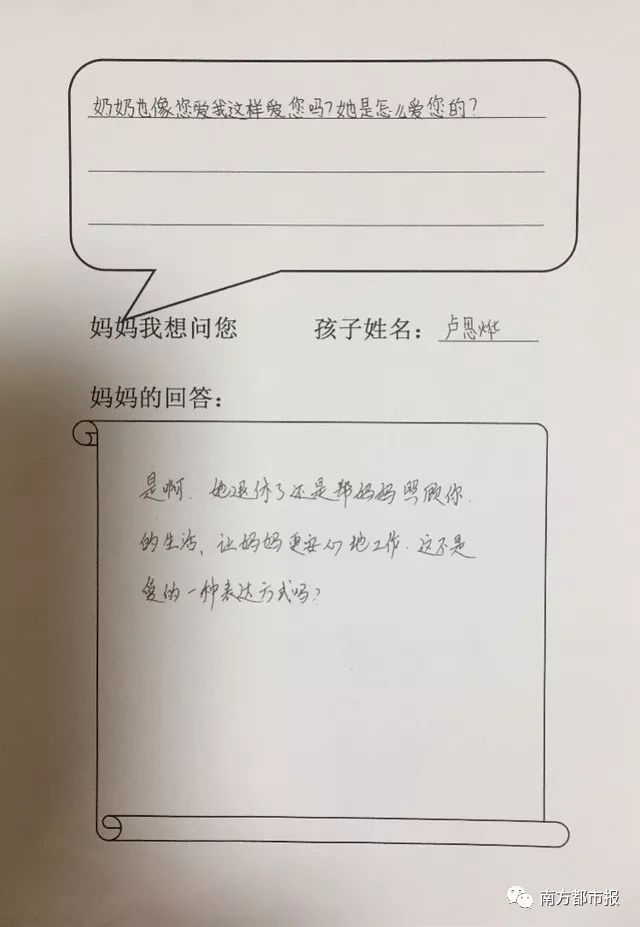 奶奶也像您爱我这样爱您吗?她是怎么爱您的?
妈妈我想问您
孩子姓名：卢思烨
妈妈的回答：
是啊．她退休了还是帮妈妈照顾你
的生活，让妈妈更安心地工作．这不是
爱的一种表达方式吗?
南方都市报